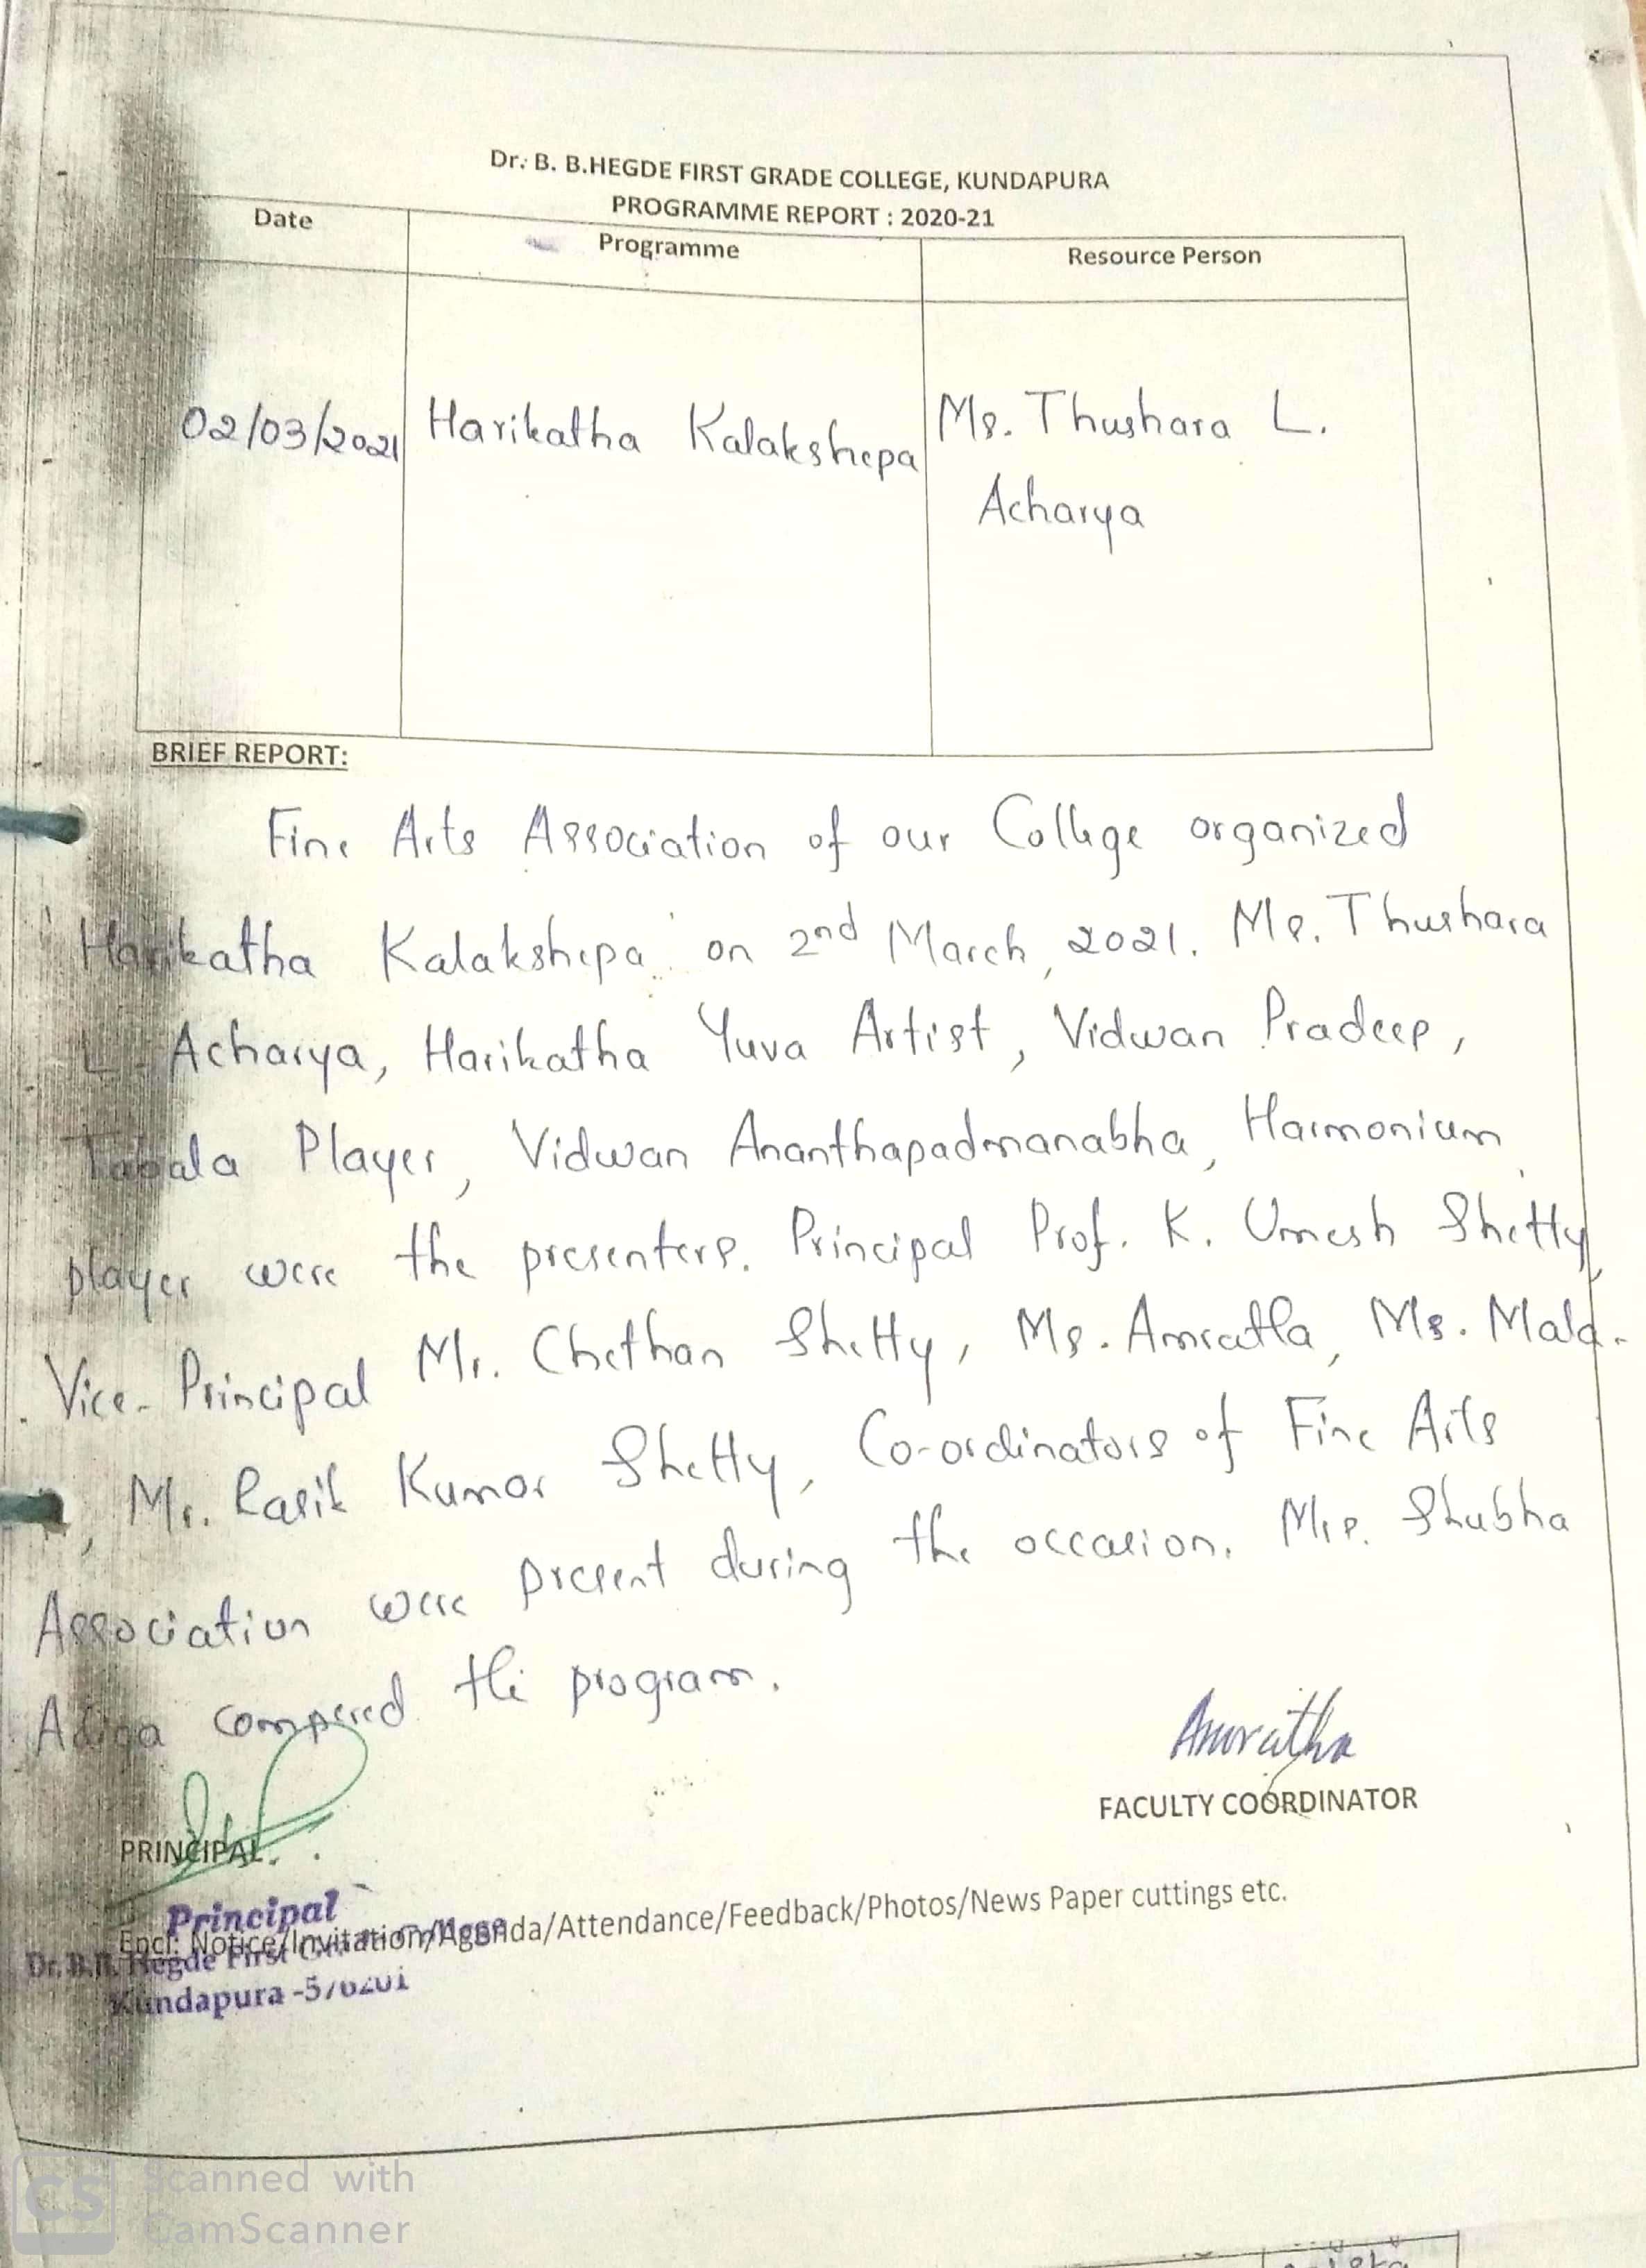 Dr. B. B.HEGDE FIRST GRADE COLLEGE, KUNDAPURA
PROGRAMME REPORT : 2020-21
Date Programme Resource Person
02/03/2021 Harikatha Kalakshepa Ms. Thushara L.
Acharya
BRIEF REPORT:
Fine Arts Association of our College organized
Harikatha Kalakshepa on 2nd March, 2021. Ms. Thushara
L. Acharya, Harikatha Yuva Artist, Vidwan Pradeep,
Tabala Player, Vidwan Ananthapadmanabha, Harmonium
player were the presenters. Principal Prof. K. Umesh Shetty,
Vice-Principal Mr. Chethan Shetty, Ms. Amratha, Ms. Mala
, Mr. Rasik Kumar Shetty, Co-ordinators of Fine Arts
Association were present during the occasion. Mrs. Shubha
Adiga compered the program.
FACULTY COORDINATOR
PRINCIPAL
Principal
Encl: Notice/Invitation/Agenda/Attendance/Feedback/Photos/News Paper cuttings etc.
Dr. B.B. Hegde First
Kundapura -576201
CS Scanned with
CamScanner